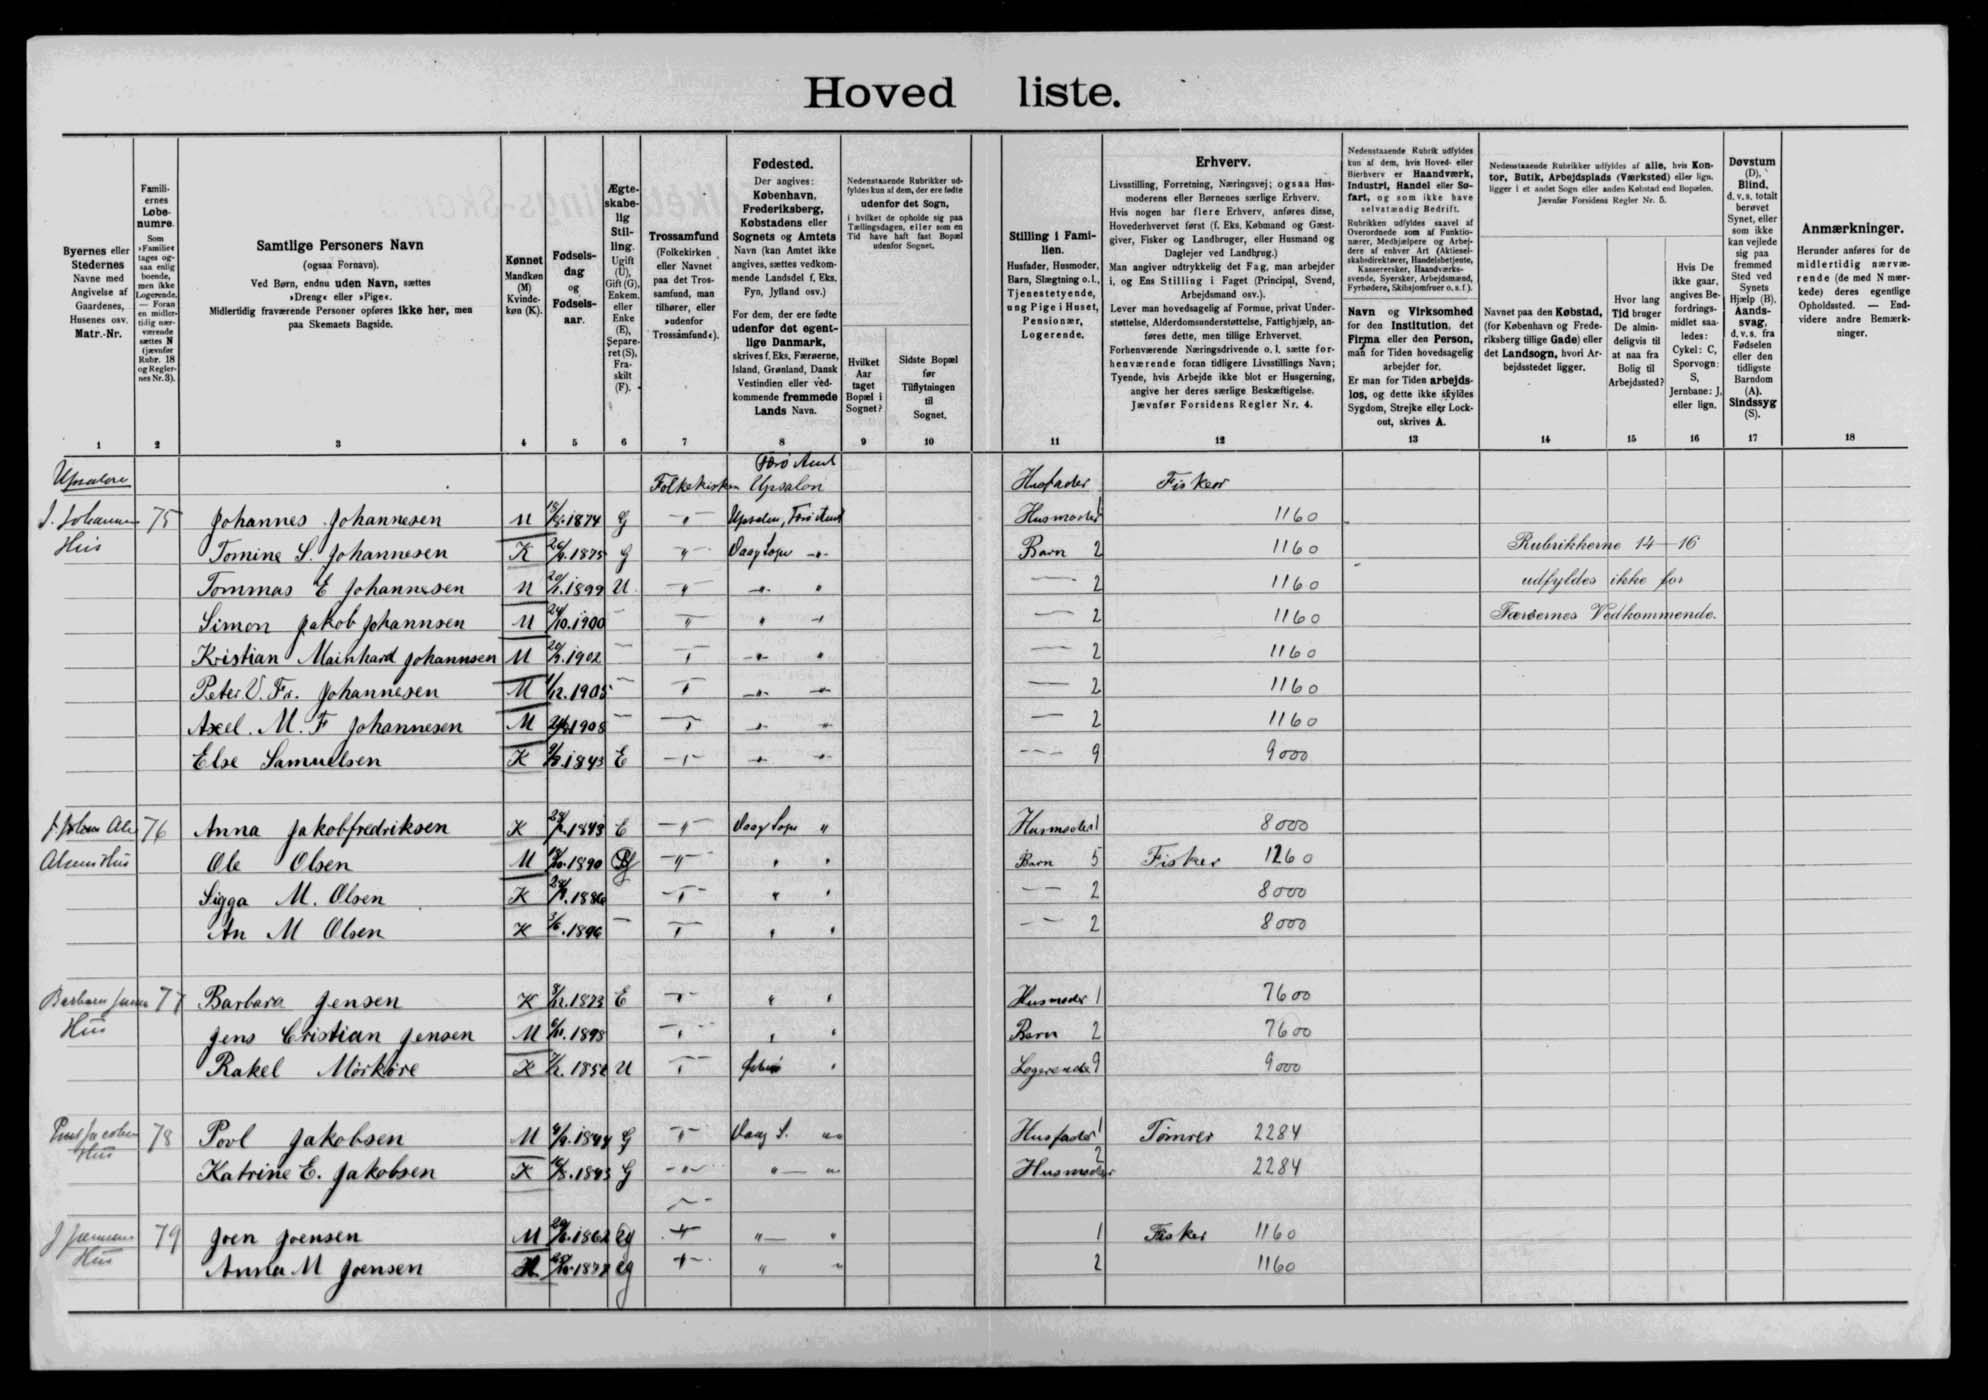 Hoved liste.
Byernes eller
Stedernes
Navne med
Angivelse af
Gaardenes,
Husenes osv.
Matr.-Nr.
1
Famili-
ernes
Løbe-
numre.
Som
»Familie«
tages og-
saa enlig
boende,
men ikke
Logerende.
— Foran
en midler-
tidig nær-
værende
sættes N
(jævnfør
Rubr. 18
og Regler-
nes Nr. 3).
2
Samtlige Personers Navn
(ogsaa Fornavn).
Ved Børn, endnu uden Navn, sættes
»Dreng« eller »Pige«.
Midlertidig fraværende Personer opføres ikke her, men
paa Skemaets Bagside.
3
Kønnet
Mandkøn
(M)
Kvinde-
køn (K).
4
Fødsels-
dag
og
Fødsels-
aar.
5
Ægte-
skabe-
lig
Stil-
ling.
Ugift
(U),
Gift (G),
Enkem.
eller
Enke
(E),
Separe-
ret (S),
Fra-
skilt
(F).
6
Trossamfund
(Folkekirken
eller Navnet
paa det Tros-
samfund, man
tilhører, eller
»udenfor
Trossamfund«).
7
Fødested.
Der angives:
København,
Frederiksberg,
Købstadens eller
Sognets og Amtets
Navn (kan Amtet ikke
angives, sættes vedkom-
mende Landsdel f. Eks.
Fyn, Jylland osv.)
For dem, der ere fødte
udenfor det egent-
lige Danmark,
skrives f. Eks. Færøerne,
Island, Grønland, Dansk
Vestindien eller ved-
kommende fremmede
Lands Navn.
8
Nedenstaaende Rubrikker ud-
fyldes kun af dem, der ere fødte
udenfor det Sogn,
i hvilket de opholde sig paa
Tællingsdagen, eller som en
Tid have haft fast Bopæl
udenfor Sognet.
Hvilket
Aar
taget
Bopæl i
Sognet?
9
Sidste Bopæl
før
Tilflytningen
til
Sognet.
10
Stilling i Fami-
lien.
Husfader, Husmoder,
Barn, Slægtning o. l.,
Tjenestetyende,
ung Pige i Huset,
Pensionær,
Logerende.
11
Erhverv.
Livsstilling, Forretning, Næringsvej; ogsaa Hus-
moderens eller Børnenes særlige Erhverv.
Hvis nogen har flere Erhverv, anføres disse,
Hovederhvervet først (f. Eks. Købmand og Gæst-
giver, Fisker og Landbruger, eller Husmand og
Daglejer ved Landbrug.)
Man angiver udtrykkelig det Fag, man arbejder
i, og Ens Stilling i Faget (Principal, Svend,
Arbejdsmand osv.).
Lever man hovedsagelig af Formue, privat Under-
støttelse, Alderdomsunderstøttelse, Fattighjælp, an-
føres dette, men tillige Erhvervet.
Forhenværende Næringsdrivende o. l. sætte for-
henværende foran tidligere Livsstillings Navn;
Tyende, hvis Arbejde ikke blot er Husgerning,
angive her deres særlige Beskæftigelse.
Jævnfør Forsidens Regler Nr. 4.
12
Nedenstaaende Rubrik udfyldes
kun af dem, hvis Hoved- eller
Bierhverv er Haandværk,
Industri, Handel eller Sø-
fart, og som ikke have
selvstændig Bedrift.
Rubrikken udfyldes saavel af
Funktio-
nærer, Medhjælpere og Arbej-
dere af enhver Art (Aktiesel-
skabsdirektører, Handelsbetjente,
Kasserersker, Haandværks-
svende, Syersker, Arbejdsmænd,
Fyrbødere, Skibsjomfruer o. s. f.).
Navn og Virksomhed
for den Institution, det
Firma eller den Person,
man for Tiden hovedsagelig
arbejder for.
Er man for Tiden arbejds-
løs, og dette ikke skyldes
Sygdom, Strejke eller Lock-
out, skrives A.
13
Nedenstaaende Rubrikker udfyldes af alle, hvis Kon-
tor, Butik, Arbejdsplads (Værksted) eller lign.
ligger i et andet Sogn eller anden Købstad end Bopælen.
Jævnfør Forsidens Regler Nr. 5.
Navnet paa den Købstad,
(for København og Frede-
riksberg tillige Gade) eller
det Landsogn, hvori Ar-
bejdsstedet ligger.
14
Hvor lang
Tid bruger
De almin-
deligvis til
at naa fra
Bolig til
Arbejdssted?
15
Hvis De
ikke gaar,
angives Be-
fordrings-
midlet saa-
ledes:
Cykel: C,
Sporvogn:
S,
Jernbane: J,
eller lign.
16
Døvstum
(D),
Blind,
d. v. s. totalt
berøvet
Synet, eller
som ikke
kan vejlede
sig paa
fremmed
Sted ved
Synets
Hjælp (B),
Aands-
svag,
d. v. s. fra
Fødselen
eller den
tidligste
Barndom
(A).
Sindssyg
(S).
17
Anmærkninger.
Herunder anføres for de
midlertidig nærvæ-
rende (de med N mær-
kede) deres egentlige
Opholdssted. — End-
videre andre Bemærk-
ninger.
18
Folkekirken Færø Amt Upsalon Husfader Fisker
75 Johannes Johannesen M 1874 G Husmoder 1160
Hus Tomine S. Johannesen K 1875 G Vaag Sogn Barn 2 1160 Rubrikkerne 14—16
Tommas E Johannesen M 1899 U 2 1160 udfyldes ikke for
Simon Jakob Johannsen M 1900 2 1160 Færøernes Vedkommende.
Kristian Mainhard Johannsen M 1902 2 1160
Peter V. Fr. Johannesen M 1905 2 1160
Axel. M. F Johannesen M 1908 2 1160
Else Samuelsen K 1843 E 9 9000
76 Anna Jakobfredriksen K 1843 E Vaag Sogn Husmoder 1 8000
Hus Ole Olsen M 1890 Barn 5 Fisker 1260
Sigga M. Olsen K 1886 2 8000
An M Olsen K 1896 2 8000
77 Barbara Jensen K 1823 E Husmoder 1 7600
Hus Jens Cristian Jensen M 1898 Barn 2 7600
Rakel Mörköre K U Logerende 9 9000
78 Povl Jakobsen M 1844 G Vaag S. Husfader 1 Tömrer 2284
Hus Katrine E. Jakobsen K 1843 G Husmoder 2 2284
79 Joen Joensen M 1862 1 Fisker 1160
Hus Anna M Joensen 2 1160